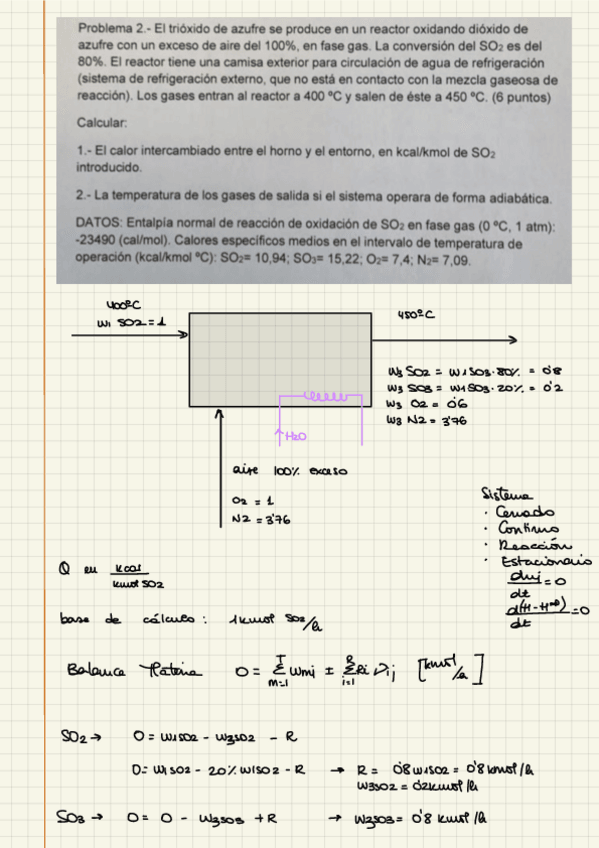 Problema 2.- El trióxido de azufre se produce en un reactor oxidando dióxido de
azufre con un exceso de aire del 100%, en fase gas. La conversión del SO2 es del
80%. El reactor tiene una camisa exterior para circulación de agua de refrigeración
(sistema de refrigeración externo, que no está en contacto con la mezcla gaseosa de
reacción). Los gases entran al reactor a 400 ºC y salen de éste a 450 ºC. (6 puntos)
Calcular:
1.- El calor intercambiado entre el horno y el entorno, en kcal/kmol de SO2
introducido.
2.- La temperatura de los gases de salida si el sistema operara de forma adiabática.
DATOS: Entalpía normal de reacción de oxidación de SO2 en fase gas (0 ºC, 1 atm):
-23490 (cal/mol). Calores específicos medios en el intervalo de temperatura de
operación (kcal/kmol ºC): SO2= 10,94; SO3= 15,22; O2= 7,4; N2= 7,09.
400ºC
W1 SO2 = 1
450ºC
W3 SO2 = W1SO3·80% = 0'8
W3 SO3 = W1SO3·20% = 0'2
W3 O2 = 0'6
W3 N2 = 3'76
H2O
aire 100% exceso
O2 = 1
N2 = 3'76
Sistema
· Cerrado
· Continuo
· Reacción
· Estacionario
dnj/dt = 0
d(H-H^ref)/dt = 0
Q en kcal/kmol SO2
base de cálculo: 1 kmol SO2/h
Balance Materia 0 = Σ(m=1→T) Wmj ± Σ(i=1→R) Ri νij [kmol/h]
SO2 → 0 = W1SO2 - W3SO2 - R
0 = W1SO2 - 20% W1SO2 - R → R = 0'8 W1SO2 = 0'8 kmol/h
W3SO2 = 0'2 kmol/h
SO3 → 0 = 0 - W3SO3 + R → W3SO3 = 0'8 kmol/h